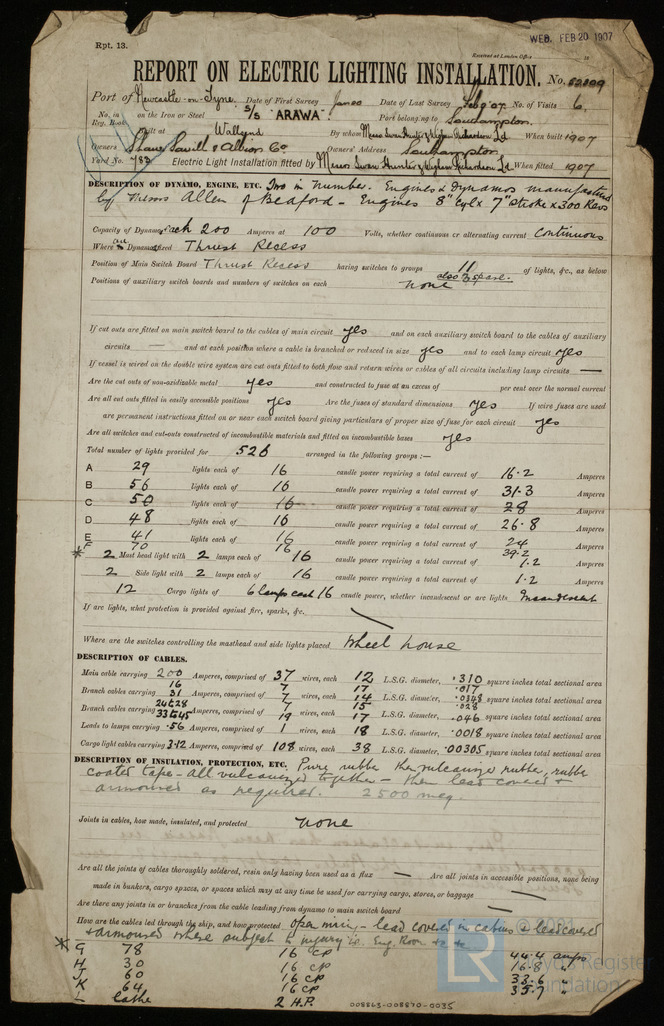 Rpt. 13.
WED. FEB 20 1907
Received at London Office
REPORT ON ELECTRIC LIGHTING INSTALLATION. No. 52209
Port of Newcastle-on-Tyne. Date of First Survey Jan 00 Date of Last Survey Feb 9 07. No. of Visits 6.
No. in Reg. Book on the Iron or Steel S/S "ARAWA" Port belonging to Southampton
Built at Wallsend By whom Messrs Swan Hunter & Wigham Richardson Ld When built 1907
Owners Shaw Savill & Albion Co Owners' Address Southampton
Yard No. 783 Electric Light Installation fitted by Messrs Swan Hunter & Wigham Richardson Ld When fitted 1907
DESCRIPTION OF DYNAMO, ENGINE, ETC. Two in Number. Engines & Dynamos manufactured
by Messrs Allen of Bedford - Engines 8" Cyl x 7" stroke x 300 Revs
Capacity of Dynamo each 200 Amperes at 100 Volts, whether continuous or alternating current Continuous
Where are Dynamos fixed Thrust Recess
Position of Main Switch Board Thrust Recess having switches to groups 11 of lights, &c., as below
also 3 spare.
Positions of auxiliary switch boards and numbers of switches on each none
If cut outs are fitted on main switch board to the cables of main circuit yes and on each auxiliary switch board to the cables of auxiliary
circuits — and at each position where a cable is branched or reduced in size yes and to each lamp circuit yes
If vessel is wired on the double wire system are cut outs fitted to both flow and return wires or cables of all circuits including lamp circuits —
Are the cut outs of non-oxidizable metal yes and constructed to fuse at an excess of per cent over the normal current
Are all cut outs fitted in easily accessible positions yes Are the fuses of standard dimensions yes If wire fuses are used
are permanent instructions fitted on or near each switch board giving particulars of proper size of fuse for each circuit yes
Are all switches and cut-outs constructed of incombustible materials and fitted on incombustible bases yes
Total number of lights provided for 526 arranged in the following groups :—
A 29 lights each of 16 candle power requiring a total current of 16.2 Amperes
B 56 lights each of 16 candle power requiring a total current of 31.3 Amperes
C 50 lights each of 16 candle power requiring a total current of 28 Amperes
D 48 lights each of 16 candle power requiring a total current of 26.8 Amperes
E 41 lights each of 16 candle power requiring a total current of 24 Amperes
F 70 16 39.2
* 2 Mast head light with 2 lamps each of 16 candle power requiring a total current of 1.2 Amperes
2 Side light with 2 lamps each of 16 candle power requiring a total current of 1.2 Amperes
12 Cargo lights of 6 lamps each 16 candle power, whether incandescent or arc lights Incandescent
If arc lights, what protection is provided against fire, sparks, &c.
Where are the switches controlling the masthead and side lights placed Wheel house
DESCRIPTION OF CABLES.
Main cable carrying 200 Amperes, comprised of 37 wires, each 12 L.S.G. diameter, .310 square inches total sectional area
16 7 17 .017
Branch cables carrying 31 Amperes, comprised of 7 wires, each 14 L.S.G. diameter, .0348 square inches total sectional area
24 & 28 7 15 .028
Branch cables carrying 33 to 45 Amperes, comprised of 19 wires, each 17 L.S.G. diameter, .046 square inches total sectional area
Leads to lamps carrying .56 Amperes, comprised of 1 wires, each 18 L.S.G. diameter, .0018 square inches total sectional area
Cargo light cables carrying 3.12 Amperes, comprised of 108 wires, each 38 L.S.G. diameter, .00305 square inches total sectional area
DESCRIPTION OF INSULATION, PROTECTION, ETC. Pure rubber then vulcanized rubber, rubber
coated tape - all vulcanized together - then lead covered &
armoured as required. 2500 meg.
Joints in cables, how made, insulated, and protected none
Are all the joints of cables thoroughly soldered, resin only having been used as a flux — Are all joints in accessible positions, none being
made in bunkers, cargo spaces, or spaces which may at any time be used for carrying cargo, stores, or baggage —
Are there any joints in or branches from the cable leading from dynamo to main switch board —
How are the cables led through the ship, and how protected open wiring - lead covered in cabins & lead covered
& armoured where subject to injury ie. Eng. Room &c &c
* G 78 16 CP 44.4 amps
H 30 16 CP 16.8 "
J 60 16 CP 33.6 "
K 64 16 CP 35.7 "
L lathe 2 H.P.
008863-008870-0035
© 2021
LR
Lloyd's Register
Foundation